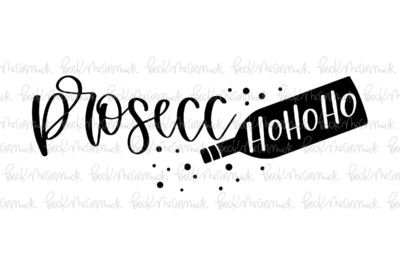 prosecc HoHoHo